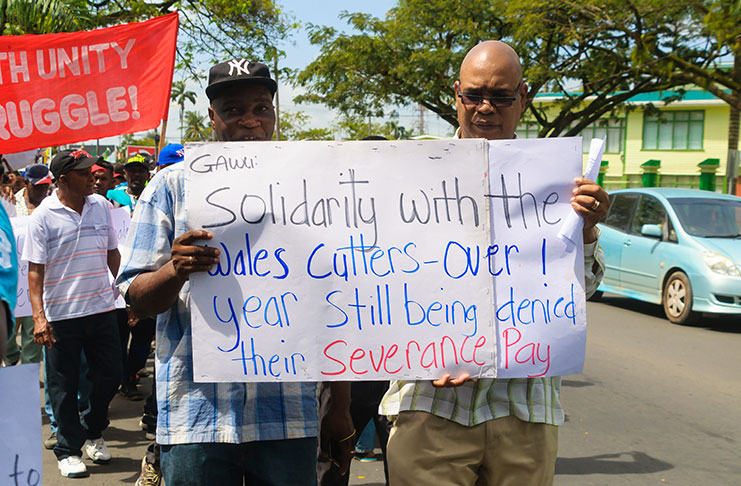 TH UNITY
RUGGLE!
NY
GAWU:
Solidarity with the
Wales Cutters-Over 1
year Still being denied
their Severance Pay
to